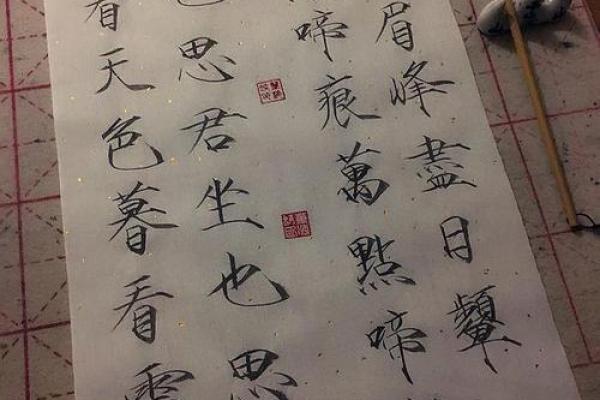 眉峰盡日顰
啼痕萬點啼
也思君坐也思
看天色暮看雲